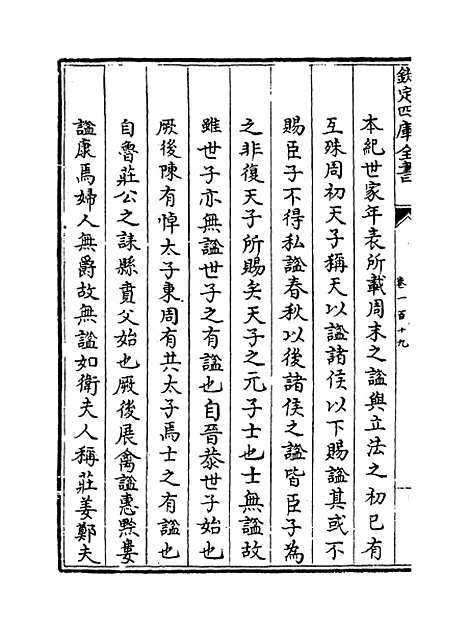 欽定四庫全書
卷一百十九
本紀世家年表所載周末之諡與立法之初已有
互殊周初天子稱天以諡諸侯以下賜諡其或不
賜臣子不得私諡春秋以後諸侯之諡皆臣子為
之非復天子所賜矣天子之元子士也士無諡故
雖世子亦無諡世子之有諡也自晉恭世子始也
厥後陳有悼太子東周有共太子焉士之有諡也
自魯莊公之誄縣賁父始也厥後展禽諡惠黔婁
諡康焉婦人無爵故無諡如衛夫人稱莊姜鄭夫